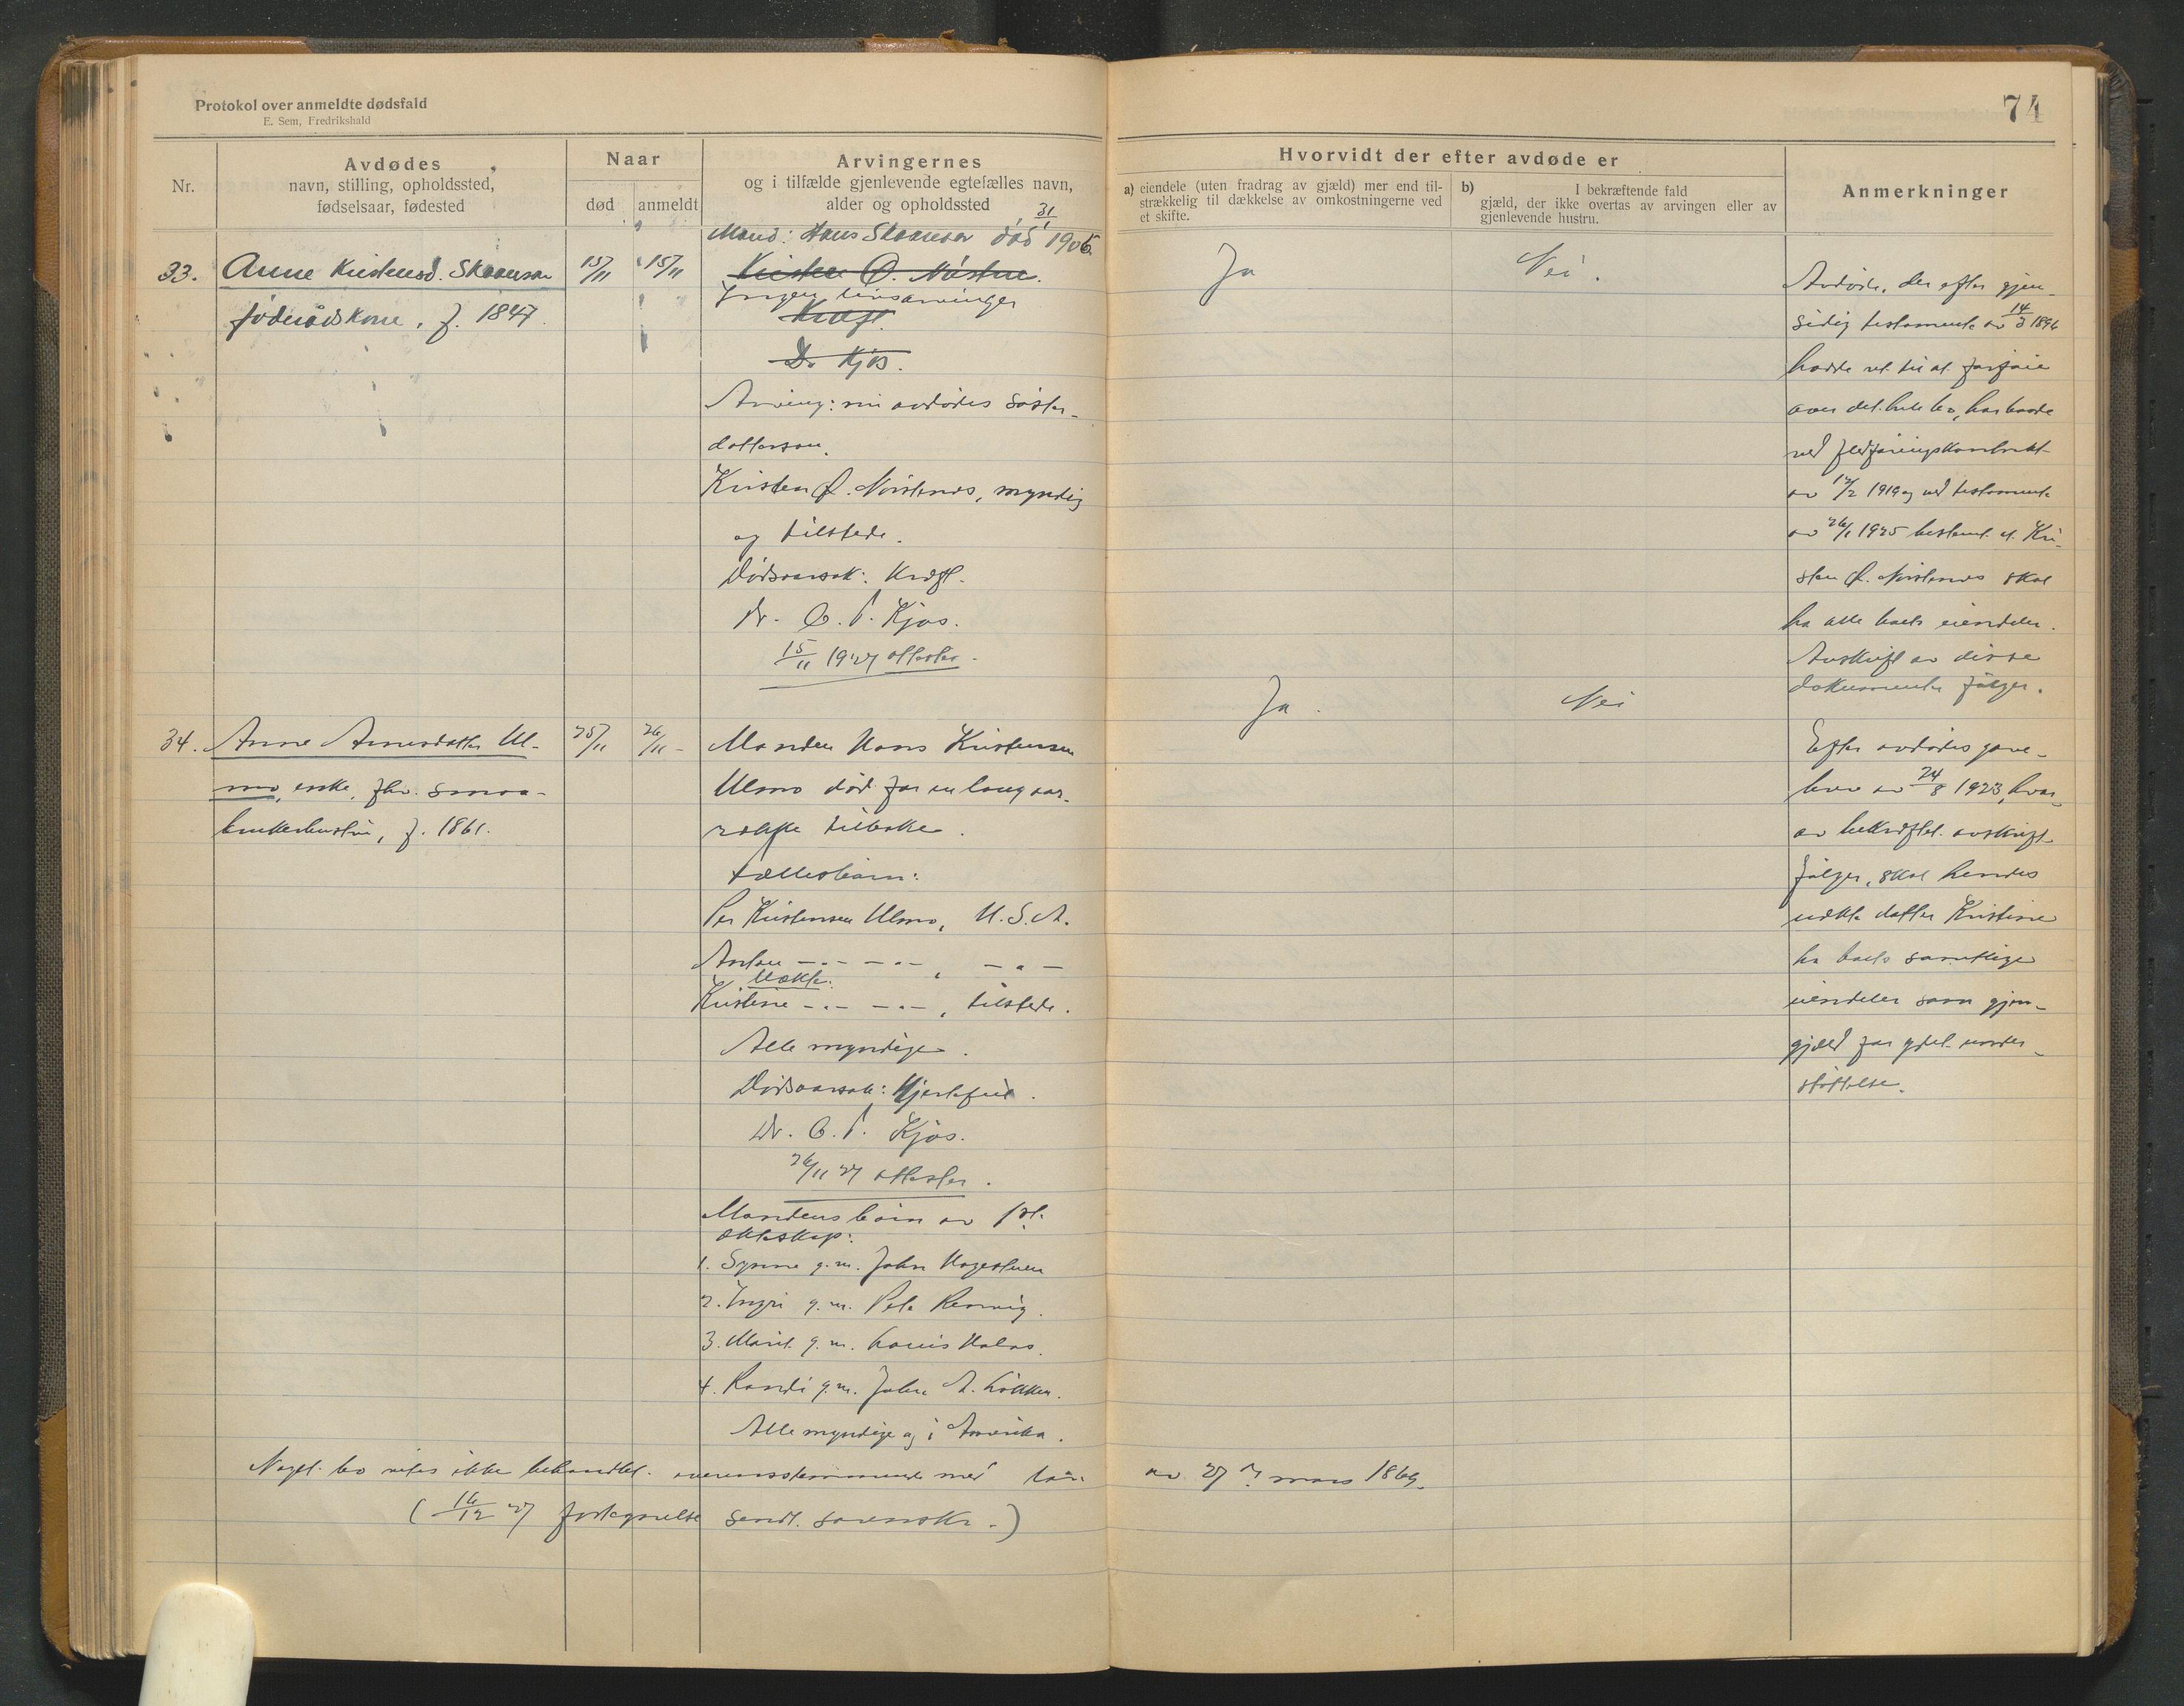 Protokol over anmeldte dødsfald
E. Sem, Fredrikshald
74
Nr.
Avdødes
navn, stilling, opholdssted,
fødselsaar, fødested
Naar
død
anmeldt
Arvingernes
og i tilfælde gjenlevende egtefælles navn,
alder og opholdssted
Hvorvidt der efter avdøde er
a) eiendele (uten fradrag av gjæld) mer end til-
strækkelig til dækkelse av omkostningerne ved
et skifte.
b) I bekræftende fald
gjæld, der ikke overtas av arvingen eller av
gjenlevende hustru.
Anmerkninger
33.
Anne Kristensd. Skaansar
føderådskone, f. 1847.
15/11
15/11
Mand: Hans Skaansar død 31/1 1906
Kristen Ø.
Ingen livsarvinger
Kræft.
Dr Kjos.
Arving: min avdødes søster-
dattersøn.
Kristen Ø. , myndig
og tilstede.
Dødsaarsak: Kræft.
Dr. O. P. Kjos.
15/11 1927 attester.
Ja
Nei.
Avdøde, der efter gjen-
sidig testamente av 14/3 1896
hadde ret til at forføie
over det hele bo, har baade
ved
av 12/2 1919 og ved testamente
av 26/1 1925 bestemt at Kri-
sten Ø. skal
ha alle boets eiendeler.
Avskrift av disse
dokumenter følger.
34.
Anne Arnesdatter Ul-
mo, enke, fhv. smaa-
brukerhustru, f. 1861.
25/11
26/11 -
Manden Hans Kristensen
Ulmo død for en lang aar-
række tilbake.
Fællesbarn:
Per Kristensen Ulmo, U.S.A.
Anton -"- -"-, -"-
Uækte:
Kristine -"- -"-, tilstede.
Alle myndige.
Dødsaarsak: Hjertefeil.
Dr. O. P. Kjos.
26/11 27 attester.
Mandens barn av 1st.
ekteskap:
1. Synne g.m. John
2. Ingri g.m. Pete
3. Marit g.m. Louis
4. Randi g.m. John A. Løkken.
Alle myndige og i Amerika.
Ja.
Nei
Efter avdødes gave-
brev av 24/8 1923, hvor-
av bekræftet avskrift
følger, skal hendes
uekte datter Kristine
ha boets samtlige
eiendeler som gjen-
gjæld for ydet under-
støttelse.
Noget bo vites ikke behandlet overensstemmende med lov av 27de mars 1869.
(16/12 27 sendt sorenskr.)